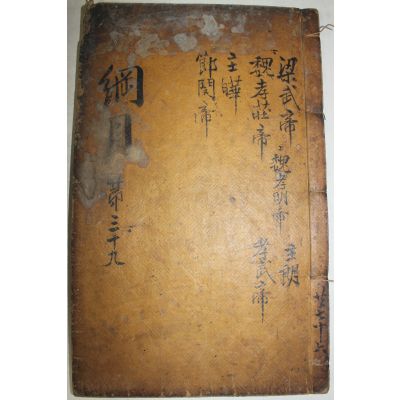 梁武帝
魏孝明帝
主朗
魏孝莊帝
孝武帝
主曄
節閔帝
綱目
第三十九
共七十六